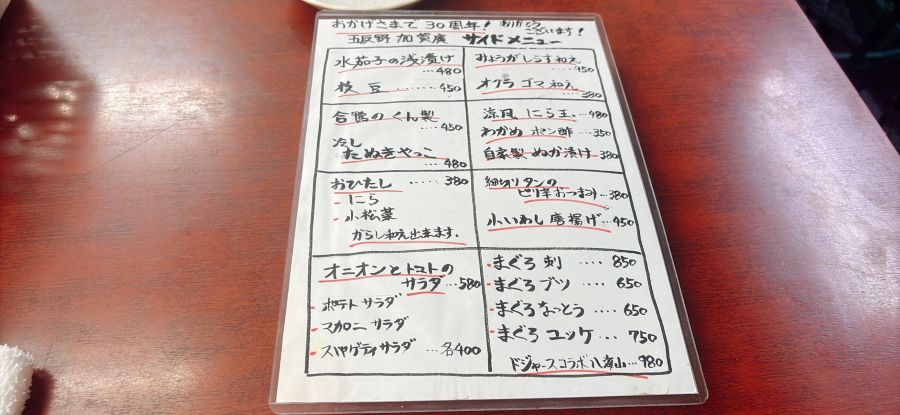 おかげさまで 30周年! ありがとうございます!
五反野 加賀廣 サイドメニュー
水茄子の浅漬け
…480
枝豆 ‥‥ 450
合鴨のくん製
‥‥ 450
冷し
たぬきやっこ
‥‥ 480
おひたし ‥‥‥ 380
- にら
- 小松菜
からし和え出来ます.
オニオンとトマトの
サラダ …580
- ポテトサラダ
- マカロニサラダ
- スパゲティサラダ …各400
みょうがしらす和え
‥‥‥450
オクラゴマ和え
‥‥‥380
涼風 にら玉 ‥480
わかめ ポン酢 …350
自家製 ぬか漬け 380
細切りタンの
ピリ辛おつまみ…380
小いわし唐揚げ…450
・まぐろ刺 ‥‥ 850
・まぐろブツ ‥‥ 650
・まぐろなっとう ‥‥ 650
・まぐろユッケ ‥‥ 750
ドジャースコラボ八海山…980